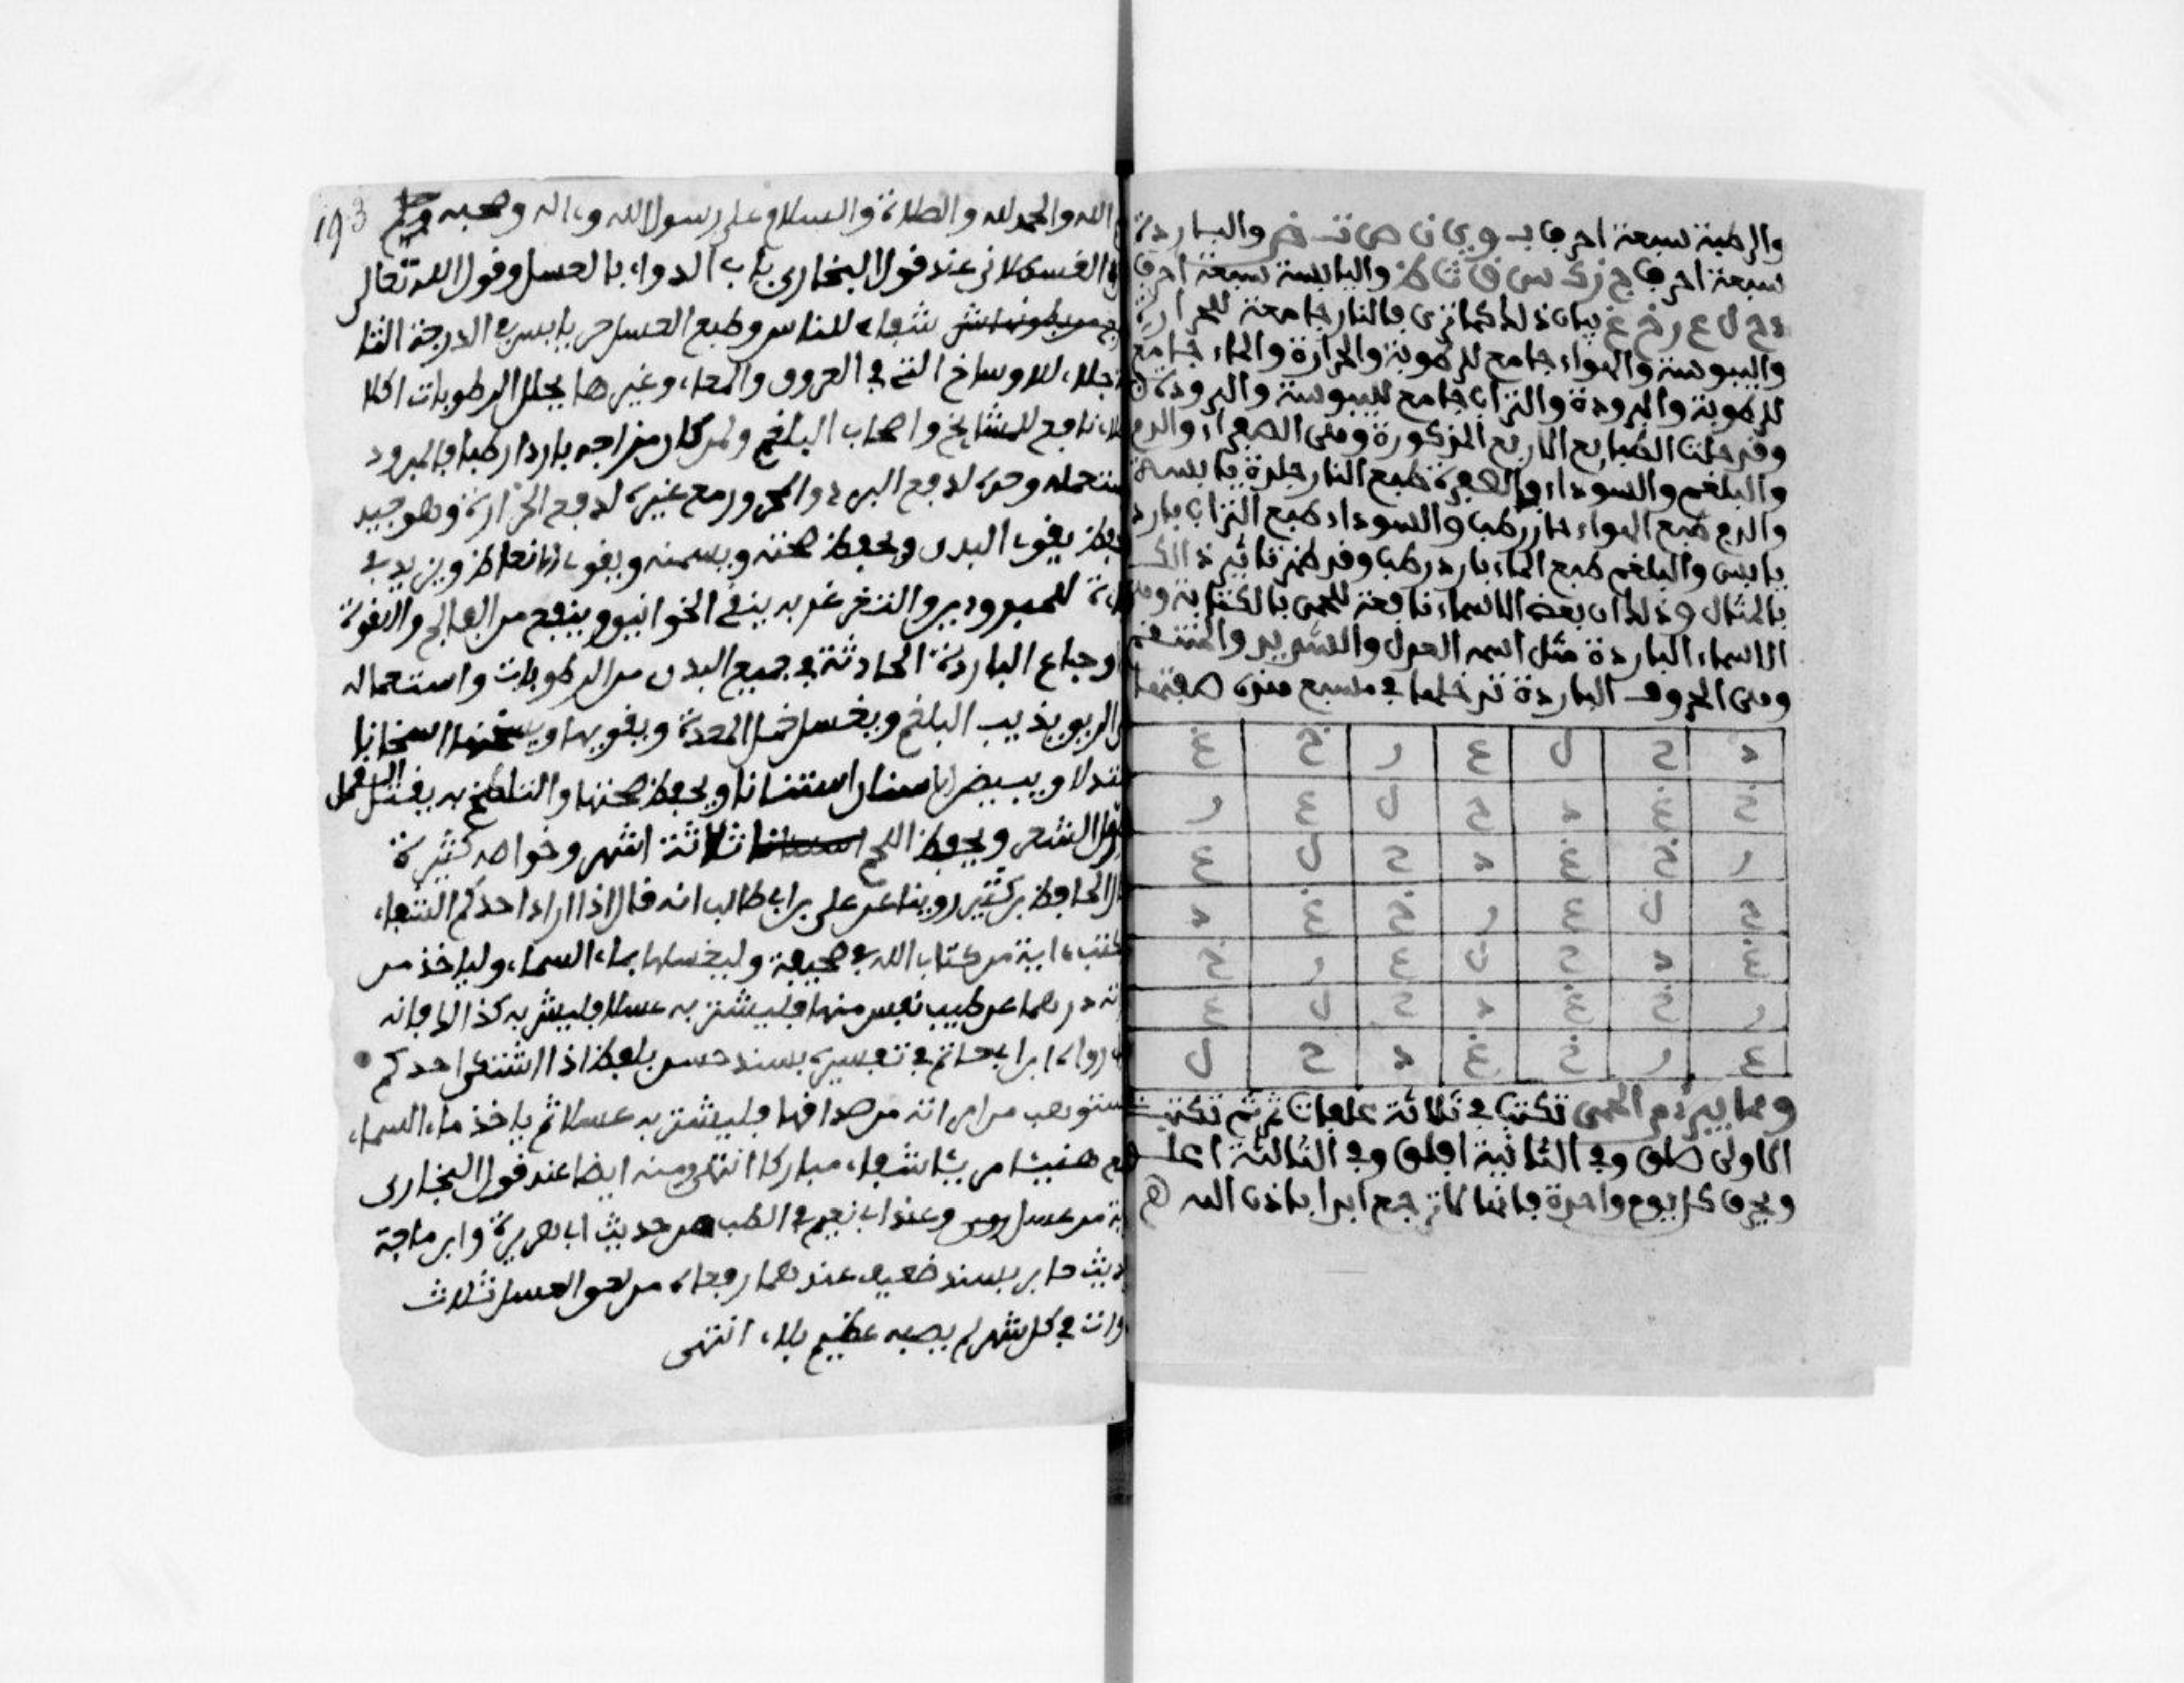 والرطبة سبعة احرف ب و ي ن ص ت ض والباردة
سبعة احرف ج ز ك س ق ث ظ واليابسة سبعة احرف
د ح ل ع ر خ غ بيان ذلك كما ترى فالنار جامعة للحرارة
واليبوسة والهواء جامع للرطوبة والحرارة والماء جامع
للرطوبة والبرودة والتراب جامع لليبوسة والبرودة
وقد حلت الطبايع الاربع المذكورة وهى الصفراء والدم
والبلغم والسوداء والصفرة طبع النار حارة يابسة
والدم طبع الهواء حار رطب والسوداء طبع التراب بارد
يابس والبلغم طبع الماء بارد رطب وقد ظهر تاثير ذالك
بالمثال وذلك ان بعض الاسماء نافعة للحمى بالكتابة
الاسماء الباردة مثل اسمه العدل والشديد والمنتقم
وهى الحروف الباردة تدخلها في مسبع هذه صفتها
د ح ل ع ر خ غ
خ غ د ح ل ع ر
ر خ غ د ح ل ع
ح ل ع ر خ غ د
غ د ح ل ع ر خ
ر خ غ د ح ل ع
ع ر خ غ د ح ل
ومما يبرئ من الحمى تكتب في ثلاثة علفات ثم تكتب
الاولى صلق وفي الثانية افلق وفي الثالثة
ويحرق كل يوم واحدة فانها لا ترجع ابدا باذن الله
الله والحمد لله والصلاة والسلام على رسول الله وءاله وصحبه
القسطلاني عند قول البخاري باب الدواء بالعسل وقول الله تعالى
شفاء للناس وطبع العسل حر يابس في الدرجة الثا
جلاء للاوساخ التي في العروق والمعاء وغيرها يحلل الرطوبات اكلا
نافع للمشايخ واصحاب البلغم ولمن كان مزاجه باردا رطبا فالمبرود
وحده لدفع البرد والمحرور مع غيره لدفع الحرارة وهو جيد
يقوي البدن ويحفظ صحته ويسمنه ويقوي الانعاظ ويزيد في
للمبرودين والتغرغر به ينقي الخوانيق وينفع من الفالج واللقوة
وجاع الباردة الحادثة في جميع البدن من الرطوبات واستعماله
الريق يذيب البلغم ويغسل خمل المعدة ويقويها ويسخنها اسخانا
ويبيض الاسنان استنانا ويحفظ صحتها والتلطخ به يقتل القمل
الشعر ويحفظ اللحم ثلاثة اشهر وخواصه كثيرة
الحافظ بن كثير روينا عن علي بن ابي طالب انه قال اذا اراد احدكم الشفاء
ءاية من كتاب الله في صحيفة وليغسلها بماء السماء ولياخذ من
درهما عن طيب نفس منها فليشتر به عسلا فليشربه كذالك فانه
رواه ابن ابي حاتم في تفسيره بسند حسن بلفظ اذا اشتكى احدكم
من امراته من صداقها فليشتر به عسلا ثم ياخذ ماء السماء
هنيئا مريئا شفاء مباركا انتهى ومنه ايضا عند قول البخاري
من عسل وعند ابي نعيم في الطب من حديث ابي هريرة وابن ماجة
جابر بسند ضعيف عندهما رفعاه من لعق العسل ثلاث
في كل شهر لم يصبه عظيم بلاء انتهى
193